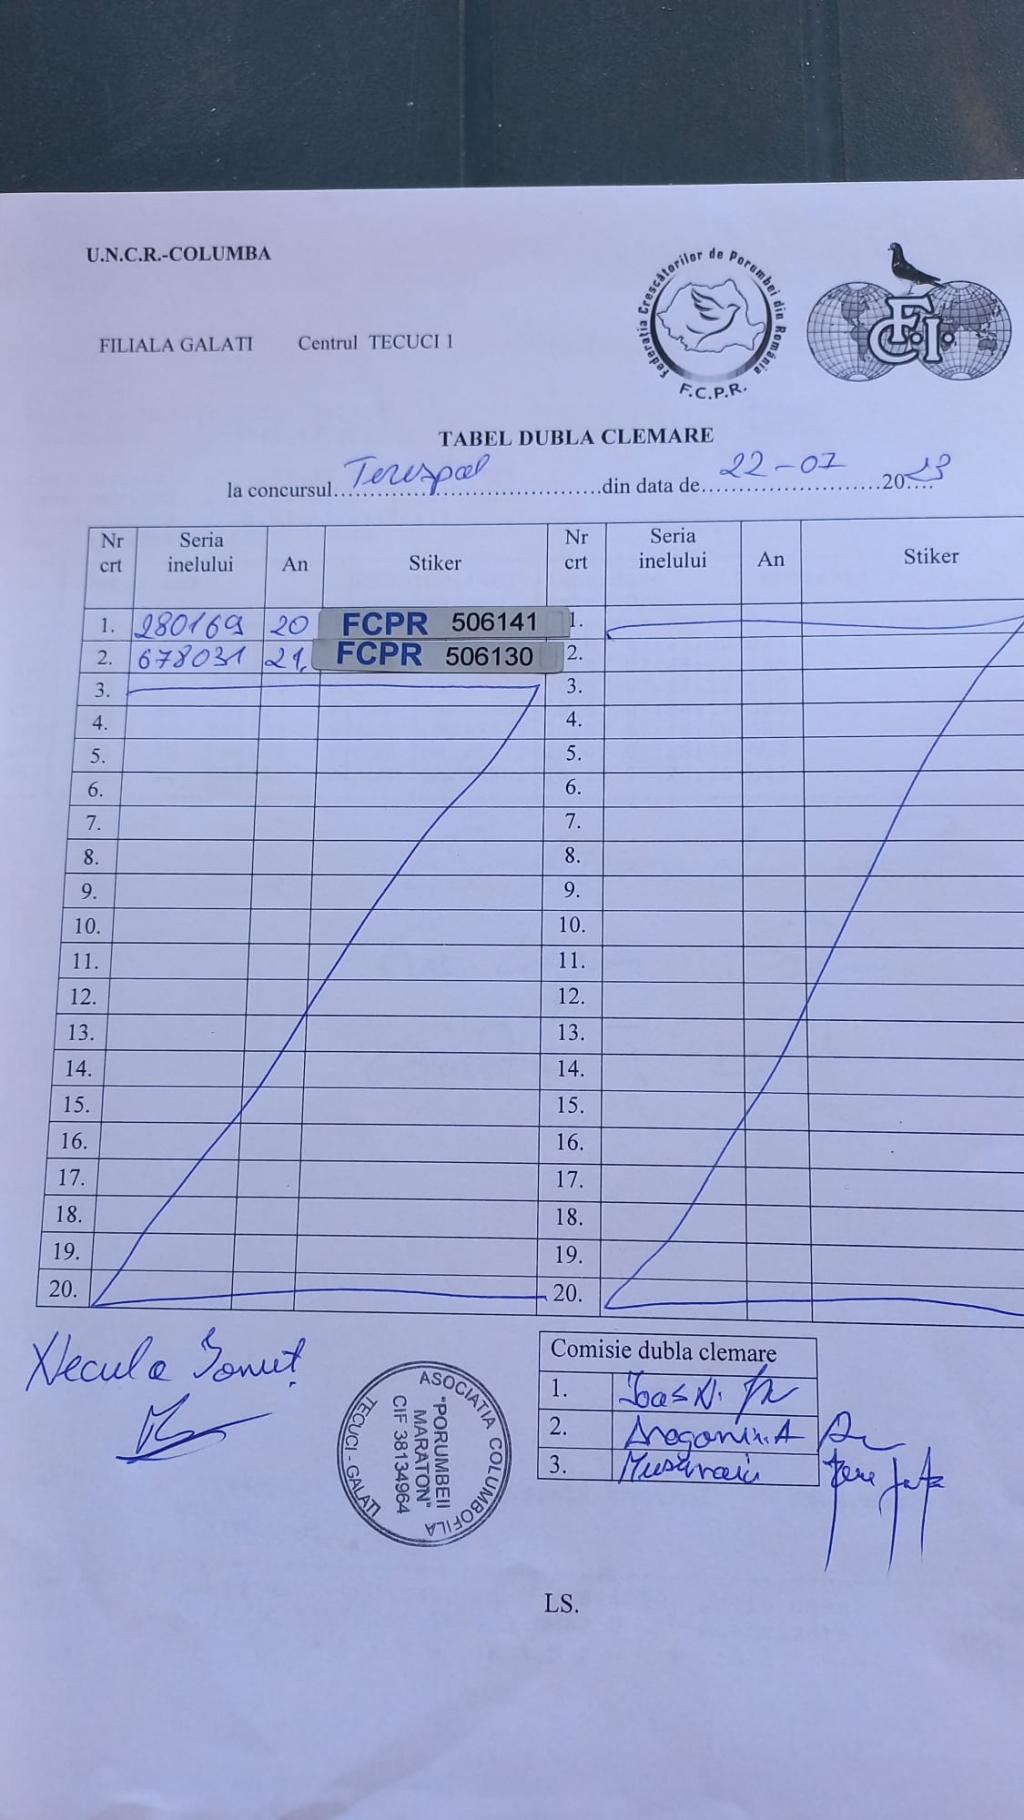 U.N.C.R.-COLUMBA
FILIALA GALATI Centrul TECUCI 1
Federația Crescătorilor de Porumbei din România
F.C.P.R.
F.C.I.
TABEL DUBLA CLEMARE
la concursul Terespol din data de 22-07 2023
Nr crt Seria inelului An Stiker Nr crt Seria inelului An Stiker
1. 280169 20 FCPR 506141 1.
2. 678031 21 FCPR 506130 2.
3. 3.
4. 4.
5. 5.
6. 6.
7. 7.
8. 8.
9. 9.
10. 10.
11. 11.
12. 12.
13. 13.
14. 14.
15. 15.
16. 16.
17. 17.
18. 18.
19. 19.
20. 20.
Necula Ionuț
ASOCIATIA COLUMBOFILA
"PORUMBEII
MARATON"
CIF 38134964
TECUCI - GALATI
Comisie dubla clemare
1.
2.
3.
LS.